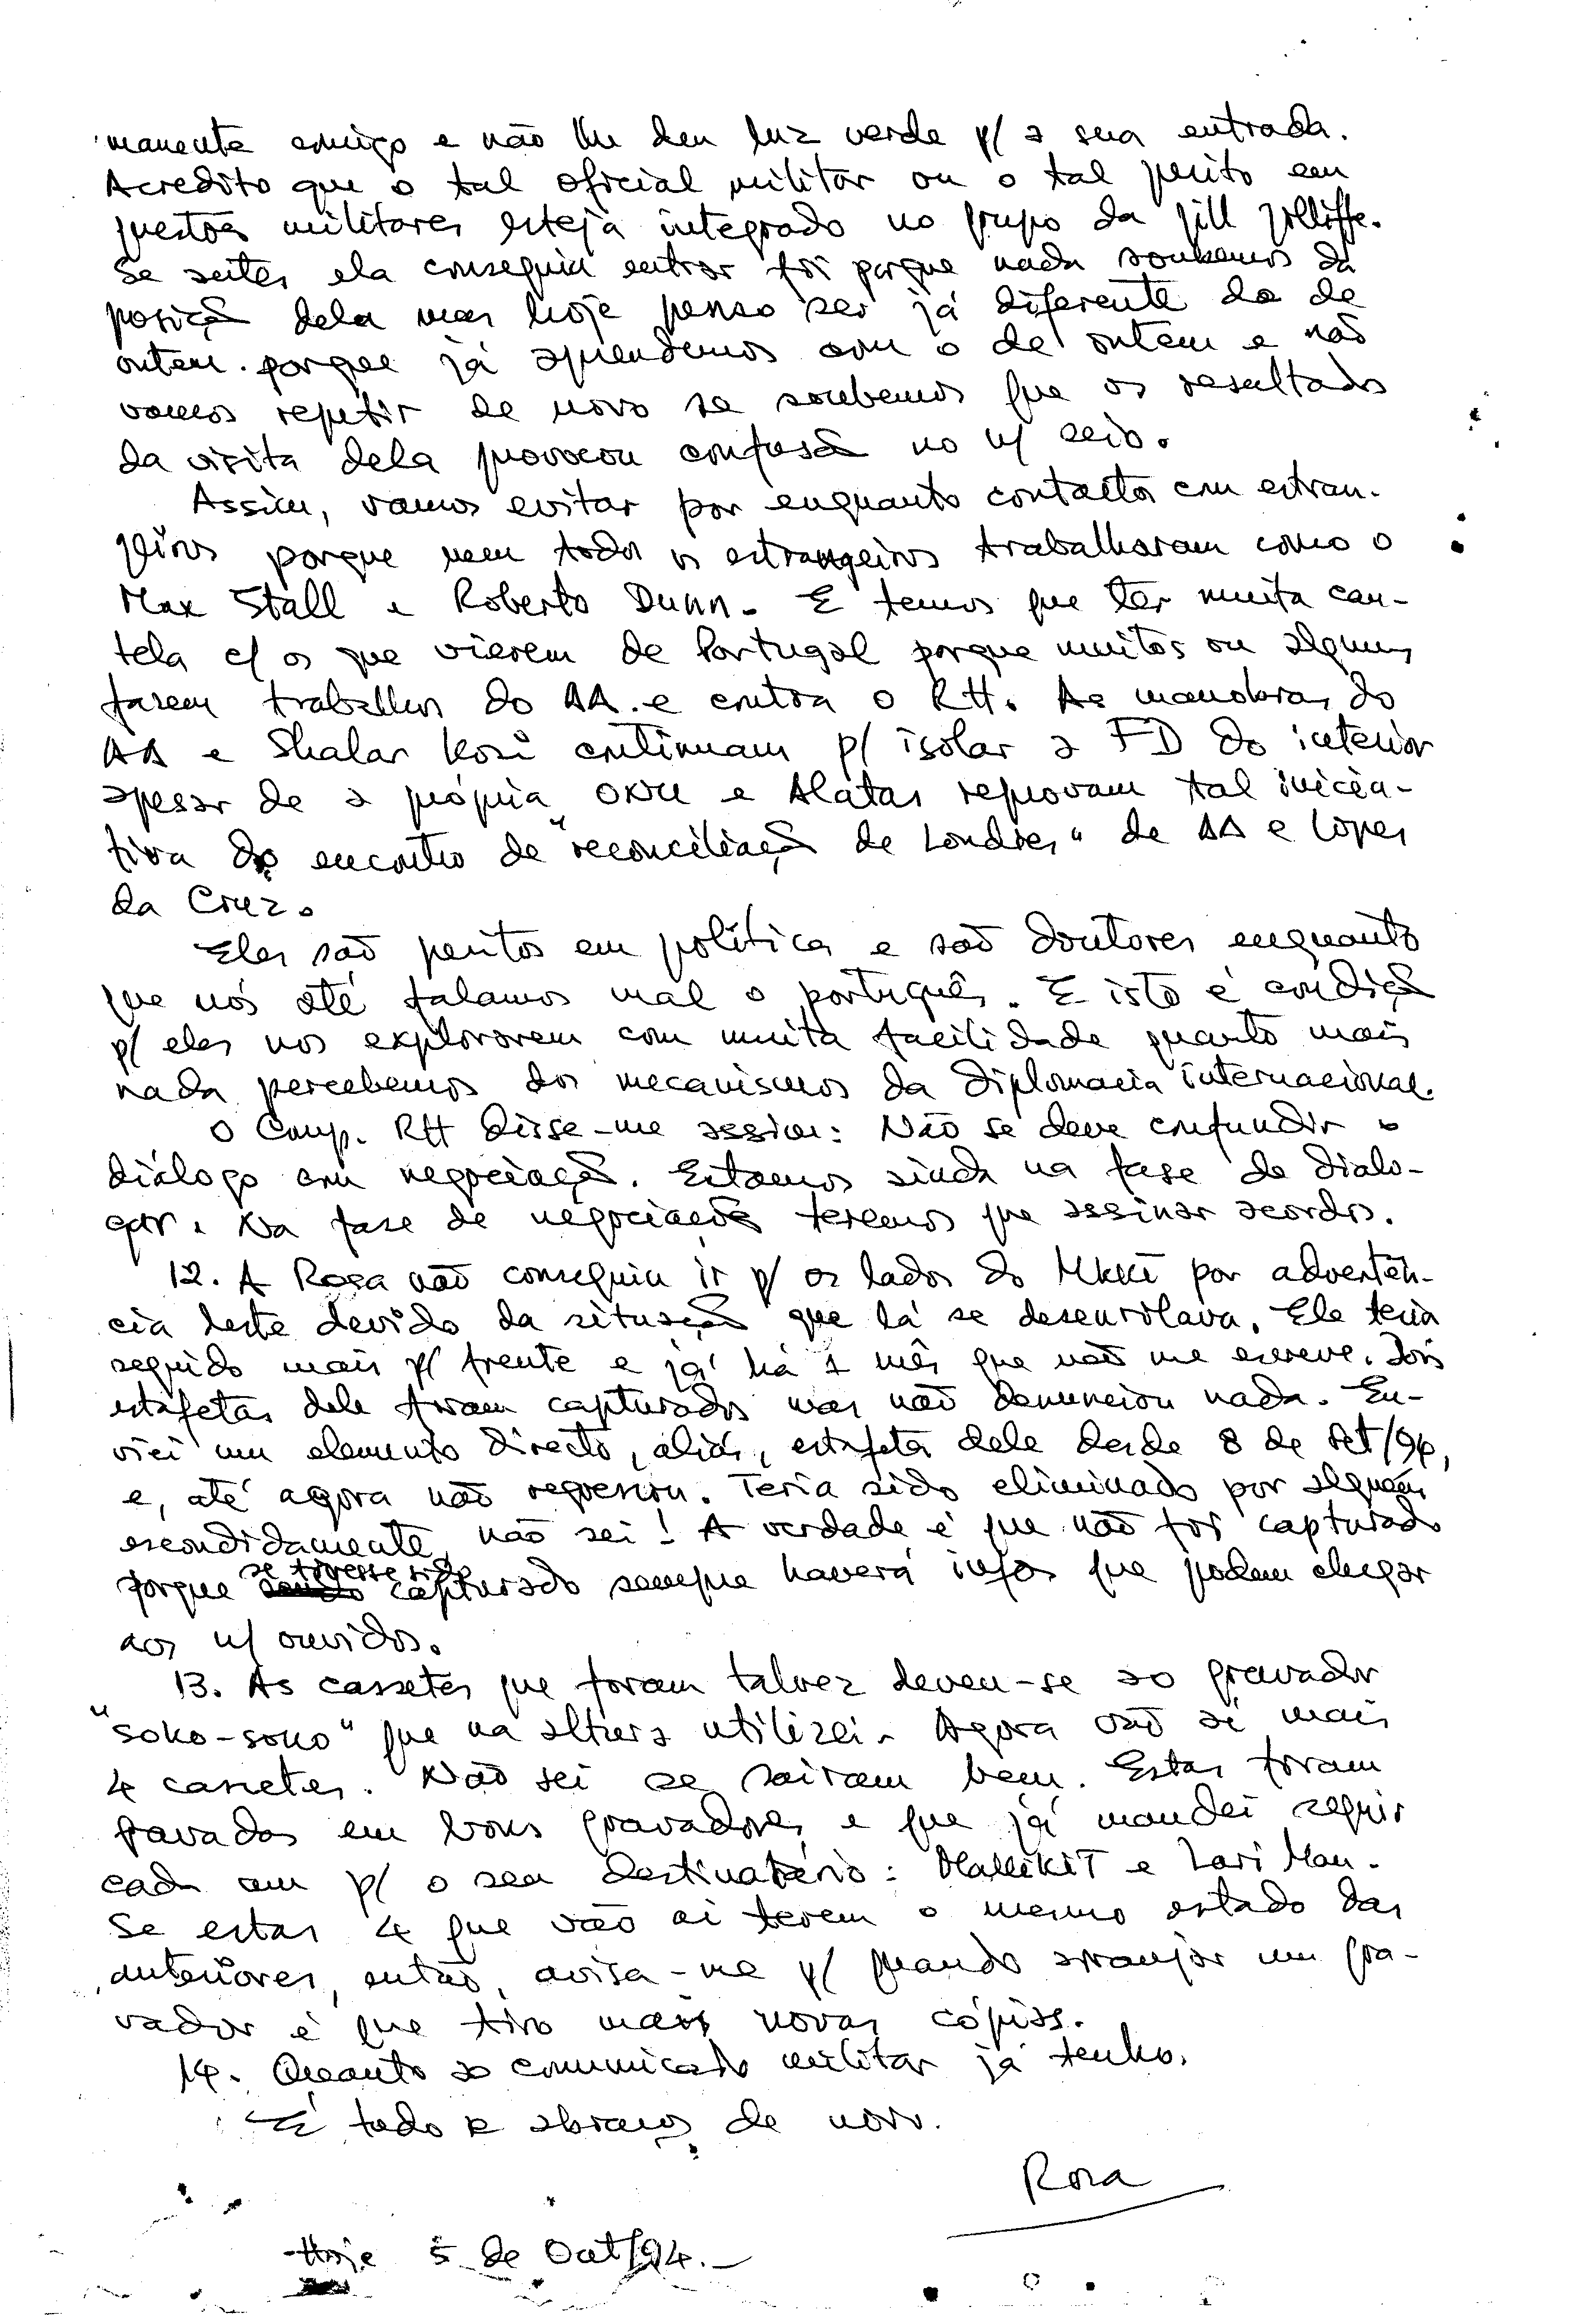 manente amigo e não lhe deu luz verde p/ a sua entrada.
Acredito que o tal oficial militar ou o tal perito em
questões militares esteja integrado no grupo da Jill Jolliffe.
Se antes ela conseguiu entrar foi porque nada soubemos da
posição dela mas hoje penso ser já diferente do de
ontem porque já aprendemos com o de ontem e não
vamos repetir de novo se soubemos que os resultados
da visita dela provocou confusão no n/ seio.
Assim, vamos evitar por enquanto contactos com estran-
geiros porque nem todos os estrangeiros trabalharam como o
Max Stall e Roberto Dunn. E temos que ter muita cau-
tela c/ os que vierem de Portugal porque muitos ou alguns
fazem trabalhos do AA. e contra o RH. As manobras do
AA e Shalar Kosi continuam p/ isolar a FD do interior
apesar de a própria ONU e Alatas reprovam tal inicia-
tiva do encontro de "reconciliação de Londres" de AA e Lopes
da Cruz.
Eles são peritos em política e são doutores enquanto
que nós até falamos mal o português. E isto é condição
p/ eles nos explorarem com muita facilidade quanto mais
nada percebemos dos mecanismos da diplomacia internacional.
O Comp. RH disse-me assim: Não se deve confundir o
diálogo com negociação. Estamos ainda na fase de dialo-
gar. Na fase de negociações teremos que assinar acordos.
12. A Rosa não conseguiu ir p/ os lados do Mkki por advertên-
cia deste devido da situação que lá se desenrolava. Ele teria
seguido mais p/ frente e já há 1 mês que não me escreve. Dois
estafetas dele foram capturados mas não denunciou nada. En-
viei um elemento directo, aliás, estafeta dele desde 8 de Set/94,
e, até agora não regressou. Teria sido eliminado por alguém
escondidamente, não sei! A verdade é que não foi capturado
porque se tivesse sido capturado sempre haverá infos que podem chegar
aos n/ ouvidos.
13. As cassetes que foram talvez deveu-se ao gravador
"soko-soko" que na altura utilizei. Agora vão aí mais
4 cassetes. Não sei se sairam bem. Estas foram
gravadas em bons gravadores e que já mandei seguir
cada um p/ o seu destinatário: Mallikit e Lari Man.
Se estas 4 que vão aí terem o mesmo estado das
anteriores, então, avisa-me p/ quando arranjar um gra-
vador é que tiro mais novas cópias.
14. Quanto ao comunicado militar já tenho.
É tudo e abraços de novo.
Rosa
Hoje 5 de Out/94.-